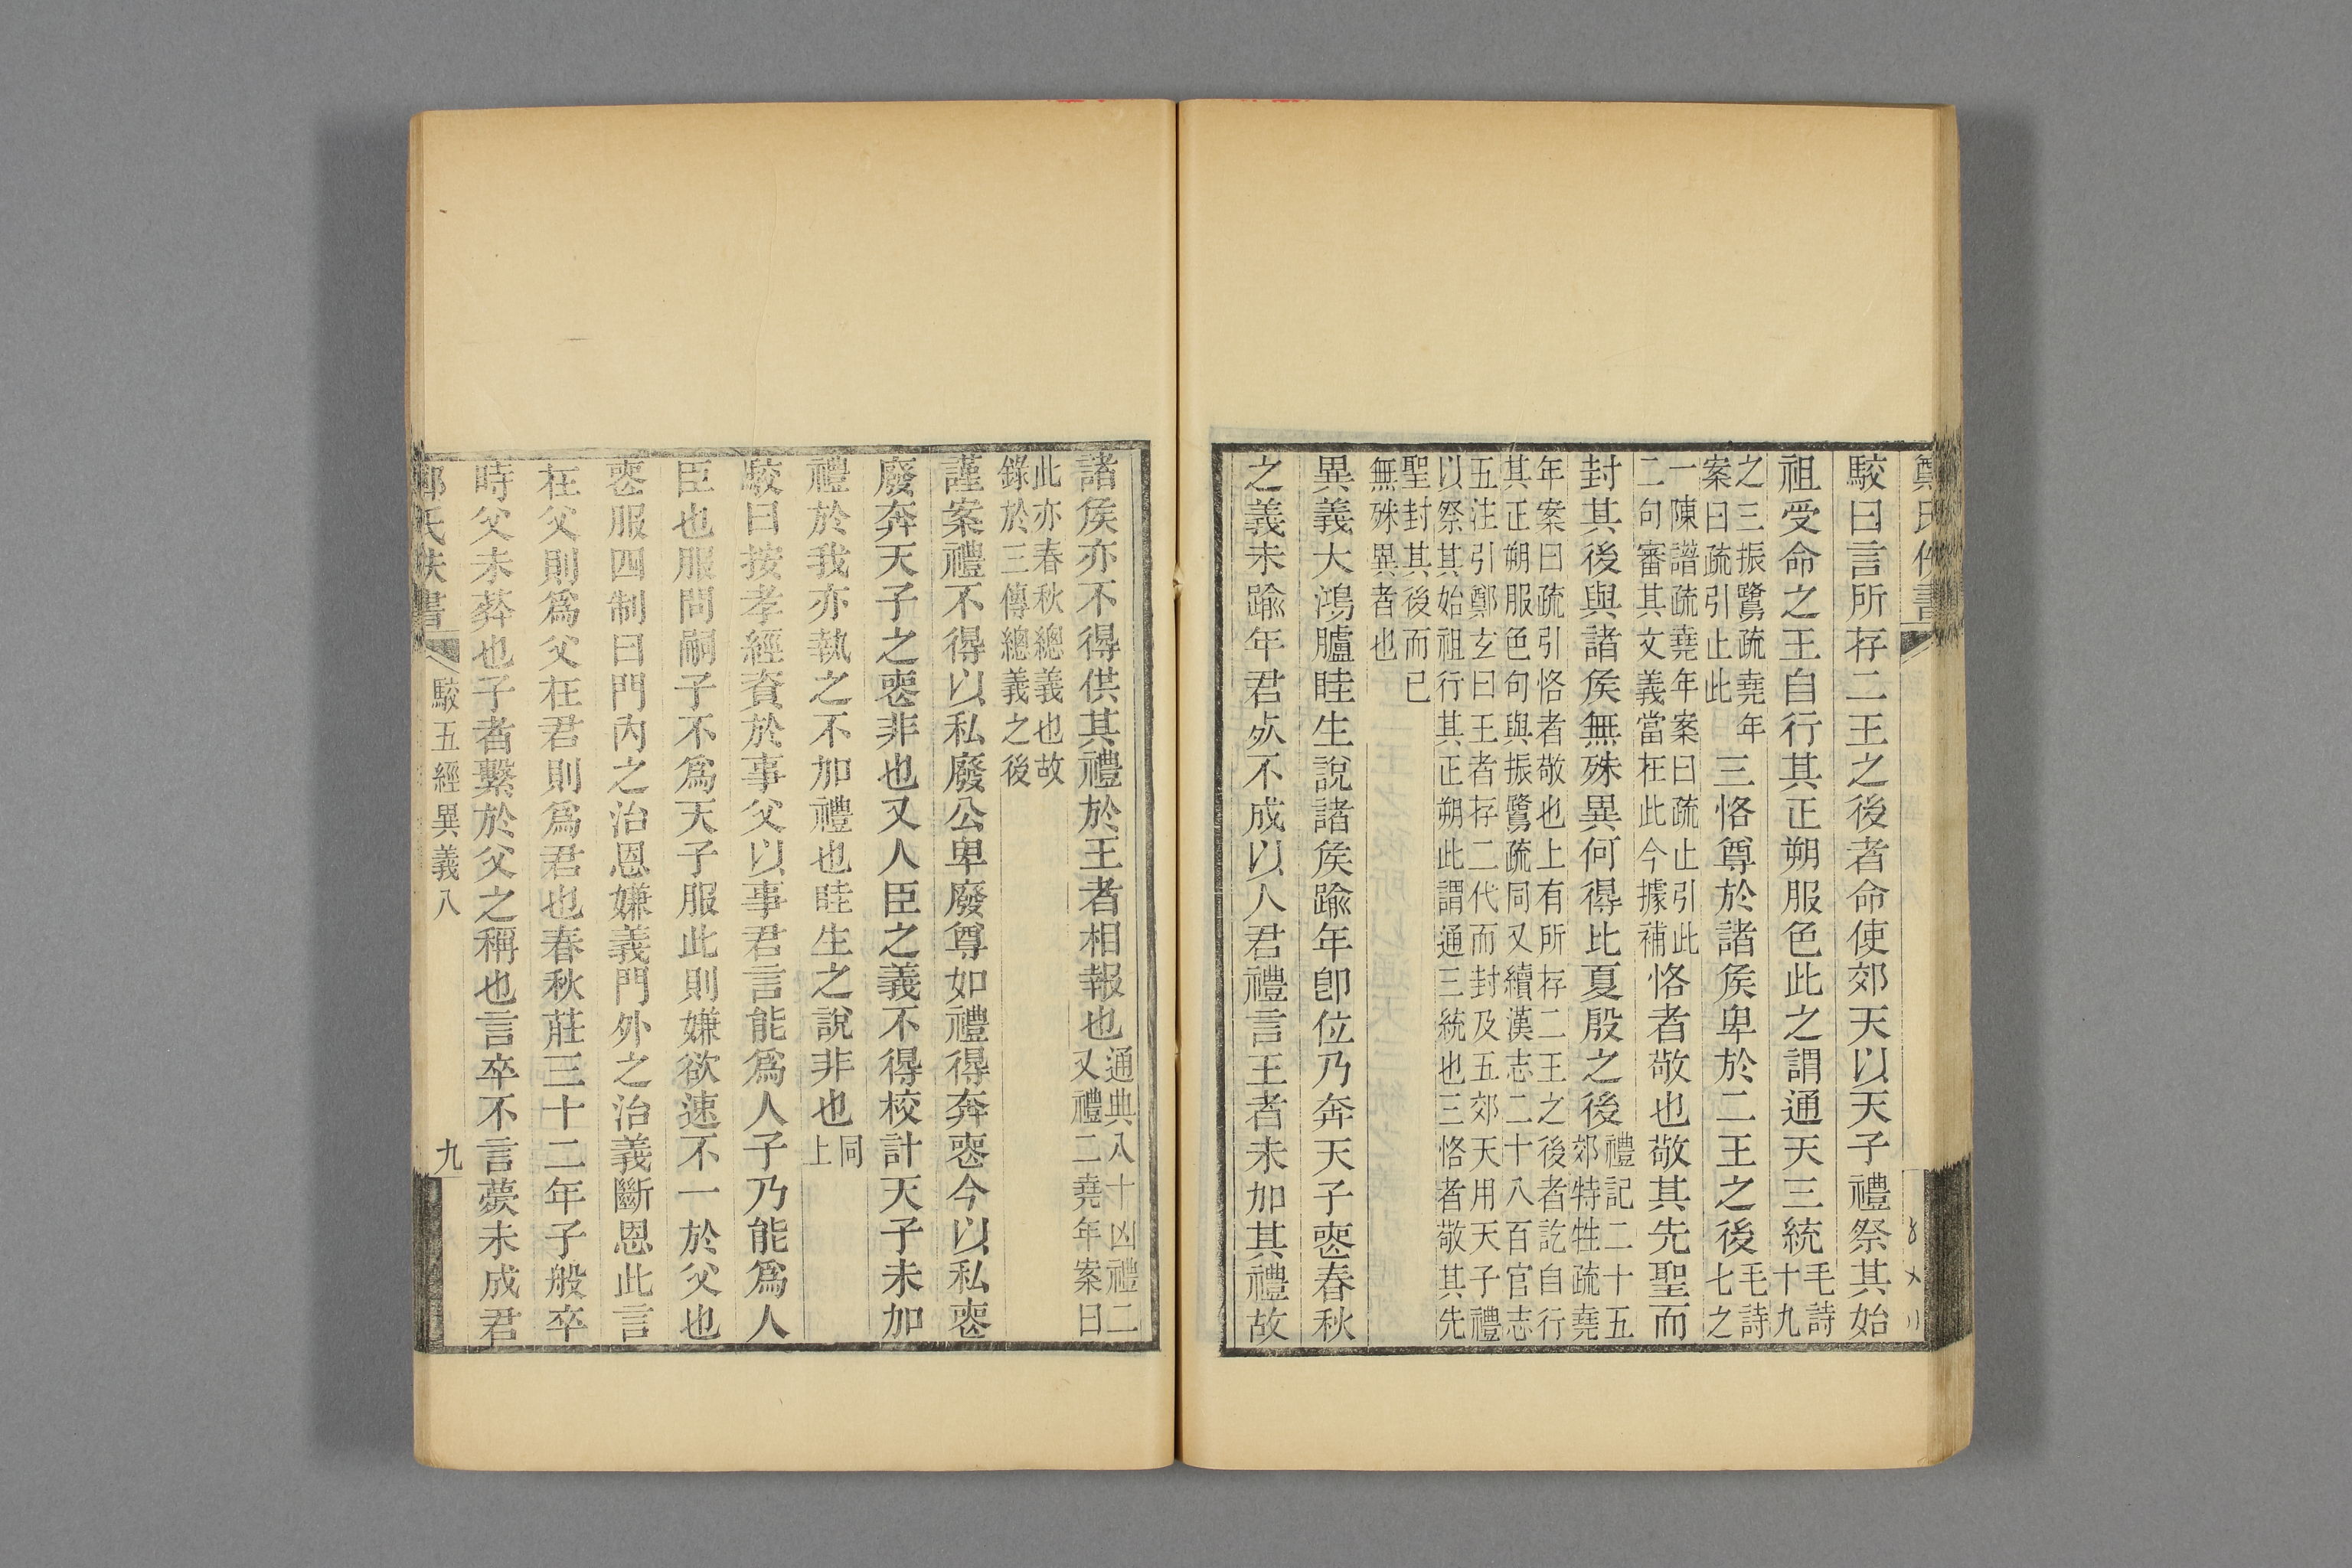 鄭氏佚書
駮曰言所存二王之後者命使郊天以天子禮祭其始
祖受命之王自行其正朔服色此之謂通天三統毛詩
十九
之三振鷺疏堯年
案曰疏引止此
三恪尊於諸矦卑於二王之後毛詩
七之
一陳譜疏堯年案曰疏止引此
二句審其文義當在此今據補
恪者敬也敬其先聖而
封其後與諸矦無殊異何得比夏殷之後
禮記二十五
郊特牲疏堯
年案曰疏引恪者敬也上有所存二王之後者訖自行
其正朔服色句與振鷺疏同又續漢志二十八百官志
五注引鄭玄曰王者存二代而封及五郊天用天子禮
以祭其始祖行其正朔此謂通三統也三恪者敬其先
聖封其後而已
無殊異者也
異義大鴻臚眭生說諸矦踰年卽位乃奔天子喪春秋
之義未踰年君死不成以人君禮言王者未加其禮故
諸矦亦不得供其禮於王者相報也
通典八十凶禮二
又禮二堯年案曰
此亦春秋總義也故
錄於三傳總義之後
謹案禮不得以私廢公卑廢尊如禮得奔喪今以私喪
廢奔天子之喪非也又人臣之義不得校計天子未加
禮於我亦執之不加禮也眭生之說非也
同
上
駮曰按孝經資於事父以事君言能爲人子乃能爲人
臣也服問嗣子不爲天子服此則嫌欲速不一於父也
喪服四制曰門內之治恩嫌義門外之治義斷恩此言
在父則爲父在君則爲君也春秋莊三十二年子般卒
時父未葬也子者繫於父之稱也言卒不言薨未成君
鄭氏佚書
駮五經異義八
九